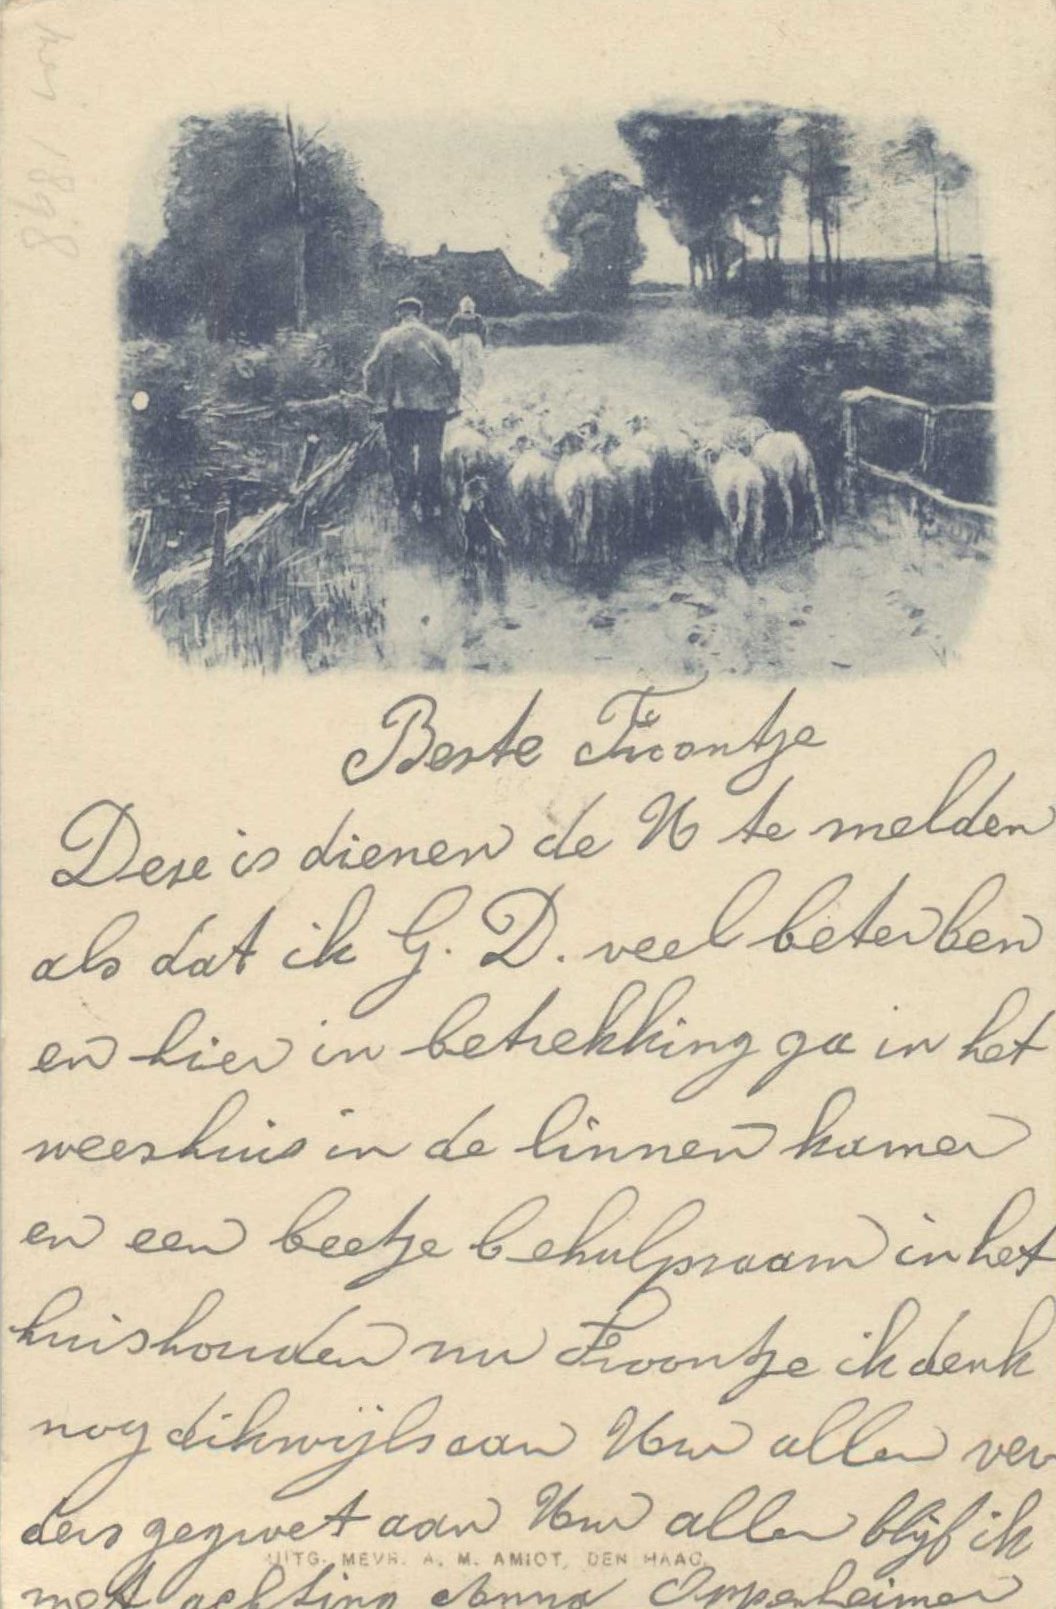 nov 1898
Beste Froontje
Dese is dienen de U te melden
als dat ik G. D. veel beter ben
en hier in betrekking ga in het
weeshuis in de linnen kamer
en een beetje behulpsaam in het
huishouden nu Froontje ik denk
nog dikwijls aan Uw allen ver
ders gegroet aan Uw allen blijf ik
UITG. MEVR. A. M. AMIOT, DEN HAAG.
met achting Anna Oppenheimer